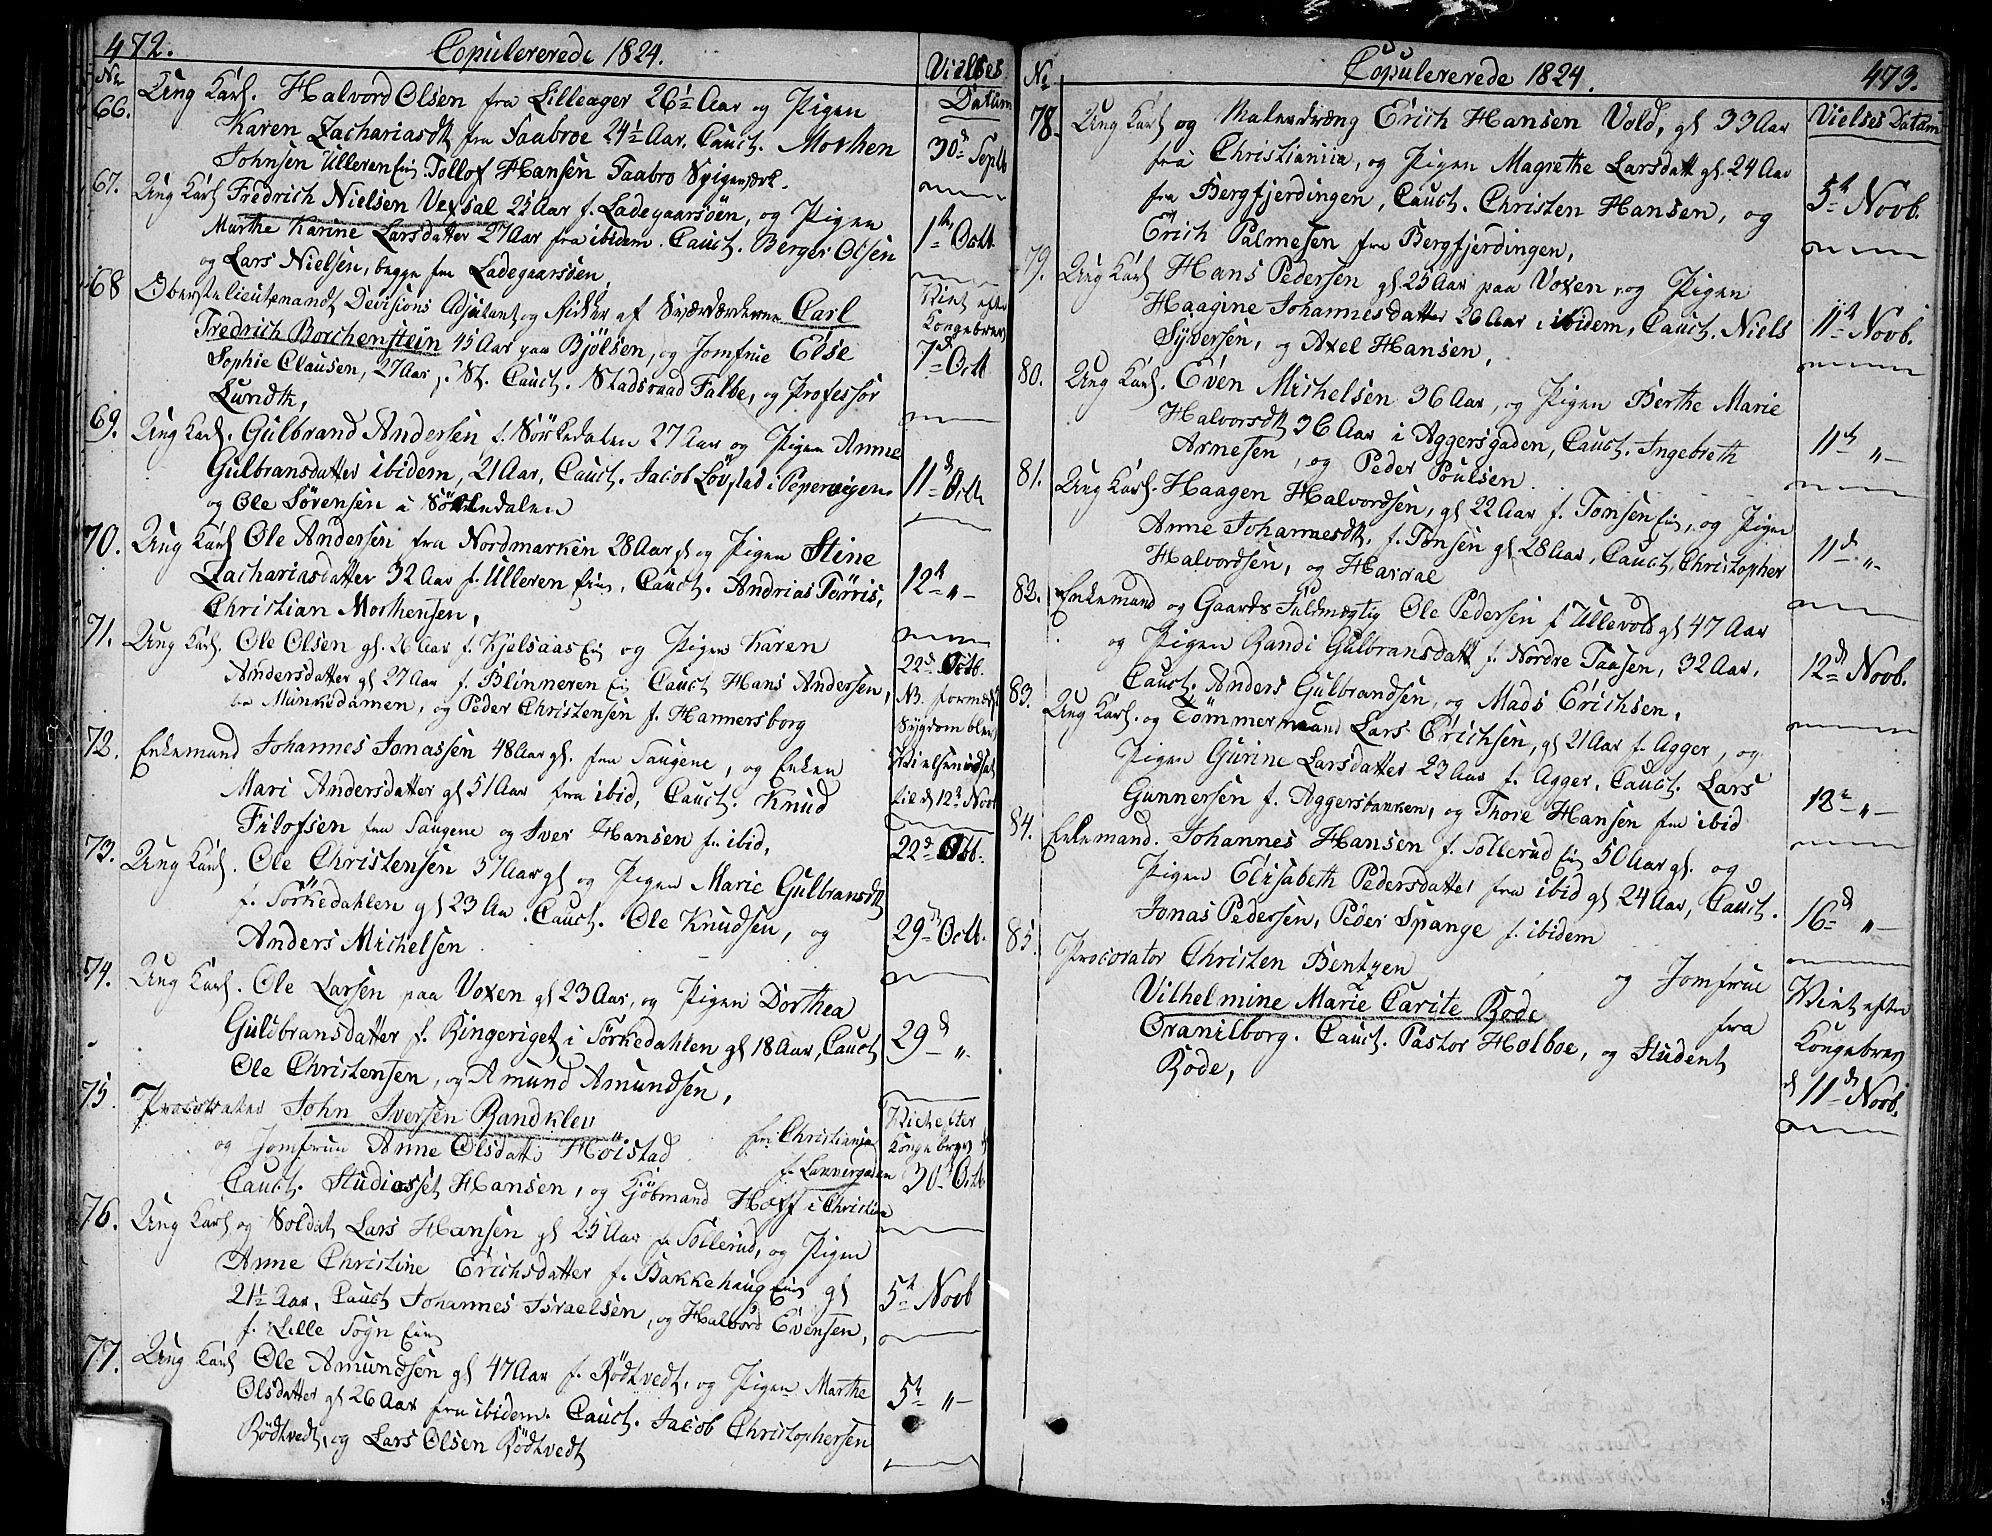 472. Copulererede 1824. Vielses
No Datum
66. Ung Karl. Halvord Olsen fra Lilleager 26½ Aar og Pigen
Karen Zachariasdt fra Faabroe 24½ Aar, Cauct. Morthen
Johnsen Ulleren Eie, Tollof Hansen Faabro Spigerværk. 30d Septb
67. Ung Karl Fredrich Nielsen Vexsal 25 Aar f. Ladegaarsøen, og Pigen
Marthe Karine Larsdatter 27 Aar fra ibidem. Cauct. Berger Olsen 1te Octb
og Lars Nielsen, begge fra Ladegaarsøen,
68 Oberstelieutenandt Devisions Adjutant og Ridder af Sværdordenen Carl Viet efter
Fredrich Borchenstein 45 Aar paa Bjølsen, og Jomfrue Else Kongebrev
Sophie Clausen, 27 Aar, St. Cauct. Stadsraad Falbe, og Professor 7d Octb
Lundth,
69. Ung Karl. Gulbrand Andersen f. Sørkedalen 27 Aar og Pigen Anne
Gulbransdatter ibidem, 21 Aar, Cauct. Jacob Løvstad i Pepervigen 11d Octb
og Ole Sørensen i Sørkedalen
70. Ung Karl Ole Andersen fra Nordmarken 28 Aar gl og Pigen Stine
Zachariasdatter 32 Aar f. Ulleren Eie, Cauct. Andrias Tørris, 12te "-
Christian Morthensen,
71. Ung Karl. Ole Olsen gl. 26 Aar f. Kjelsaas Eie og Pigen Karen 22d Octb.
Andersdatter gl 27 Aar f. Blinneren Eie Cauct Hans Andersen, NB. formedelst
fra Munkedamen, og Peder Christensen f. Hammersborg Sygdom blev
72. Enkemand Johannes Jonassen 48 Aar gl. fra Saugene, og Enken Vielsen udsat
Mari Andersdatter gl 51 Aar fra ibid, Cauct. Knud til d 12te Novb
Filofsen fra Saugene og Iver Hansen f. ibid, 22d Octb.
73. Ung Karl. Ole Christensen 37 Aar gl og Pigen Marie Gulbransdt
f. Sørkedahlen gl 23 Aar. Cauct. Ole Knudsen, og 29d Octb.
Anders Michelsen
74. Ung Karl. Ole Larsen paa Voxen gl 23 Aar, og Pigen Dorthea
Guldbransdatter f. Ringeriget i Sørkedahlen gl 18 Aar, Cauct 29d "-
Ole Christensen, og Amund Amundsen,
75. Procorator John Iversen Randklev fra Christiania Viet efter
og Jomfrue Anne Olsdatte Høistad Kongebrev d
Cauct. Studiosset Hansen, og Kjøbmand Hoff i Christia 30 Octb
76. Ung Karl og Soldat Lars Hansen gl 25 Aar f. Sollerud, og Pigen
Anne Christine Erichsdatter f. Bakkehaug Eie gl
21½ Aar, Cauct Johannes Israelsen, og Halvord Evensen, 5te Novb
f. Lille Sogn Eie
77. Ung Karl Ole Amundsen gl 47 Aar f. Rødtvedt, og Pigen Marthe
Olsdatter gl 26 Aar fra ibidem. Cauct. Jacob Christophersen 5te "-
Rødtvedt, og Lars Olsen Rødtvedt
No Copulererede 1824. 473.
Vielses Datum
78. Ung Karl og Malerdræng Erich Hansen Vold, gl 33 Aar
fra Christiania, og Pigen Magrethe Larsdatt gl 24 Aar
fra Bergfjerdingen, Cauct. Christen Hansen, og 5te Novb.
Erich Palmesen fra Bergfjerdingen,
79. Ung Karl Hans Pedersen gl 25 Aar paa Voxen, og Pigen
Haagine Johannesdatter 26 Aar i ibidem, Cauct. Niels 11te Novb.
Syversen, og Axel Hansen,
80. Ung Karl. Even Michelsen 36 Aar, og Pigen Berthe Marie
Halvorsdt 36 Aar i Aggersgaden, Cauct. Ingebreth 11te "-
Arnesen, og Peder Poulsen
81. Ung Karl. Haagen Halvordsen, gl 22 Aar f. Tonsen Eie, og Pigen
Anne Johannesdt, f. Tonsen gl 28 Aar, Cauct. Christopher 11d "-
Halvordsen, og Harral
82. Enkemand og Gaards Fuldmægtig Ole Pedersen f Ullevold gl 47 Aar
og Pigen Randi Gulbransdatt f. Nordre Taasen, 32 Aar, 12te Novb.
Cauct. Anders Gulbrandsen, og Mads Erichsen,
83. Ung Karl. og Tømmermand Lars Erichsen, gl 21 Aar f. Agger, og
Pigen Gurine Larsdatter 23 Aar f. Agger, Cauct. Lars
Gunnersen f. Aggersbanken, og Thore Hansen fra ibid 12te "-
84. Enkemand. Johannes Hansen f. Sollerud Eie 50 Aar gl. og
Pigen Elisabeth Pedersdatter fra ibid gl 24 Aar, Cauct. 16d "-
Jonas Pedersen, Peder Spange f. ibidem
85. Procorator Christen Bentzen og Jomfrue Viet efter
Vilhelmine Marie Carite Rode fra Kongebrev
Oranilborg. Cauct. Pastor Holboe, og Student d 11te Novb.
Rode,